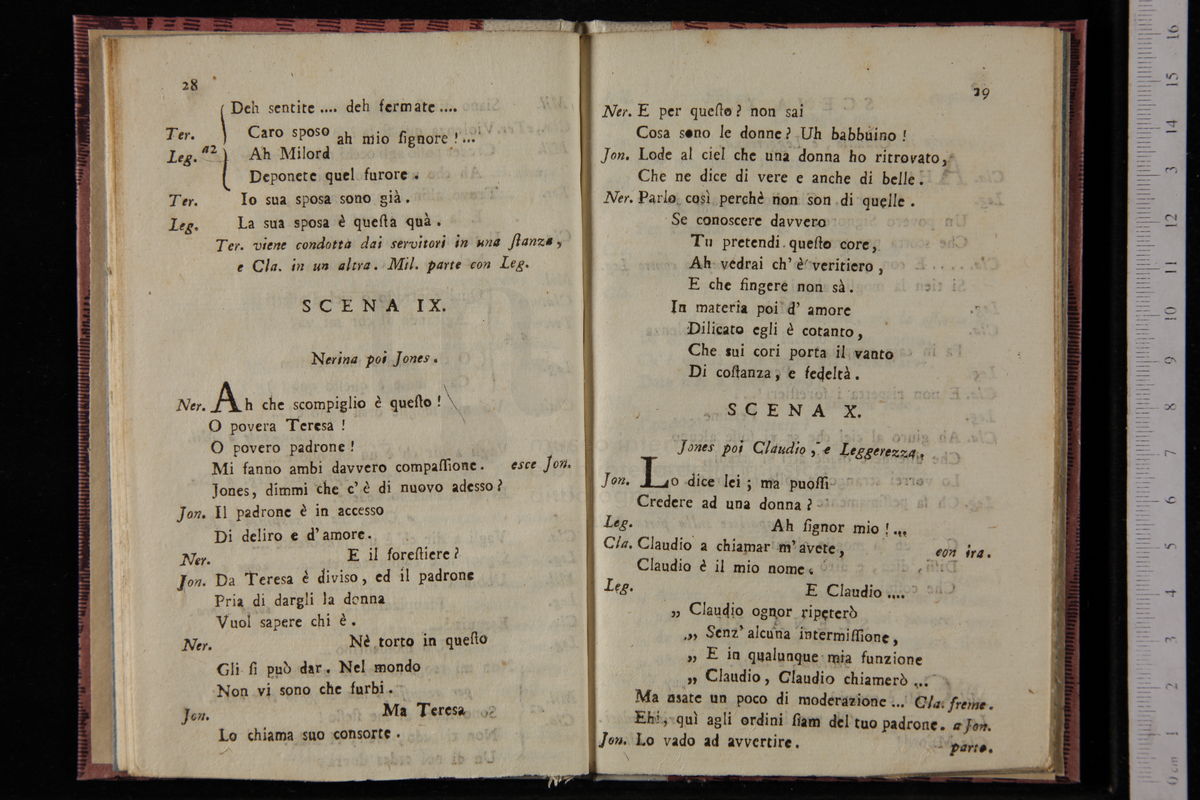 28
Deh sentite .... deh fermate ....
Ter. Caro sposo
Leg. a2 Ah Milord ah mio ſignore ! ...
Deponete quel furore .
Ter. Io sua sposa sono già .
Leg. La sua sposa è queſta quà .
Ter. viene condotta dai servitori in una ſtanza ,
e Cla. in un altra . Mil. parte con Leg.
SCENA IX.
Nerina poi Jones .
Ner. Ah che scompiglio è queſto !
O povera Teresa !
O povero padrone !
Mi fanno ambi davvero compaſſione . esce Jon.
Jones, dimmi che c' è di nuovo adesso ?
Jon. Il padrone è in accesso
Di deliro e d' amore .
Ner. E il foreſtiere ?
Jon. Da Teresa è diviso , ed il padrone
Pria di dargli la donna
Vuol sapere chi è .
Ner. Nè torto in queſto
Gli ſi può dar . Nel mondo
Non vi sono che furbi .
Jon. Ma Teresa
Lo chiama suo consorte .
29
Ner. E per queſto ? non sai
Cosa sono le donne ? Uh babbuino !
Jon. Lode al ciel che una donna ho ritrovato ,
Che ne dice di vere e anche di belle .
Ner. Parlo così perchè non son di quelle .
Se conoscere davvero
Tu pretendi queſto core ,
Ah vedrai ch' è veritiero ,
E che fingere non sà .
In materia poi d' amore
Dilicato egli è cotanto ,
Che sui cori porta il vanto
Di coſtanza , e fedeltà .
SCENA X.
Jones poi Claudio , e Leggerezza .
Jon. Lo dice lei ; ma puoſſi
Credere ad una donna ?
Leg. Ah ſignor mio ! ...
Cla. Claudio a chiamar m' avete , con ira .
Claudio è il mio nome .
Leg. E Claudio ....
„ Claudio ognor ripeterò
„ Senz' alcuna intermiſſione ,
„ E in qualunque mia funzione
„ Claudio , Claudio chiamerò ...
Ma usate un poco di moderazione ... Cla. freme .
Ehi , quì agli ordini ſiam del tuo padrone . a Jon.
Jon. Lo vado ad avvertire . parte .
0 cm 1 2 3 4 5 6 7 8 9 10 11 12 13 14 15 16